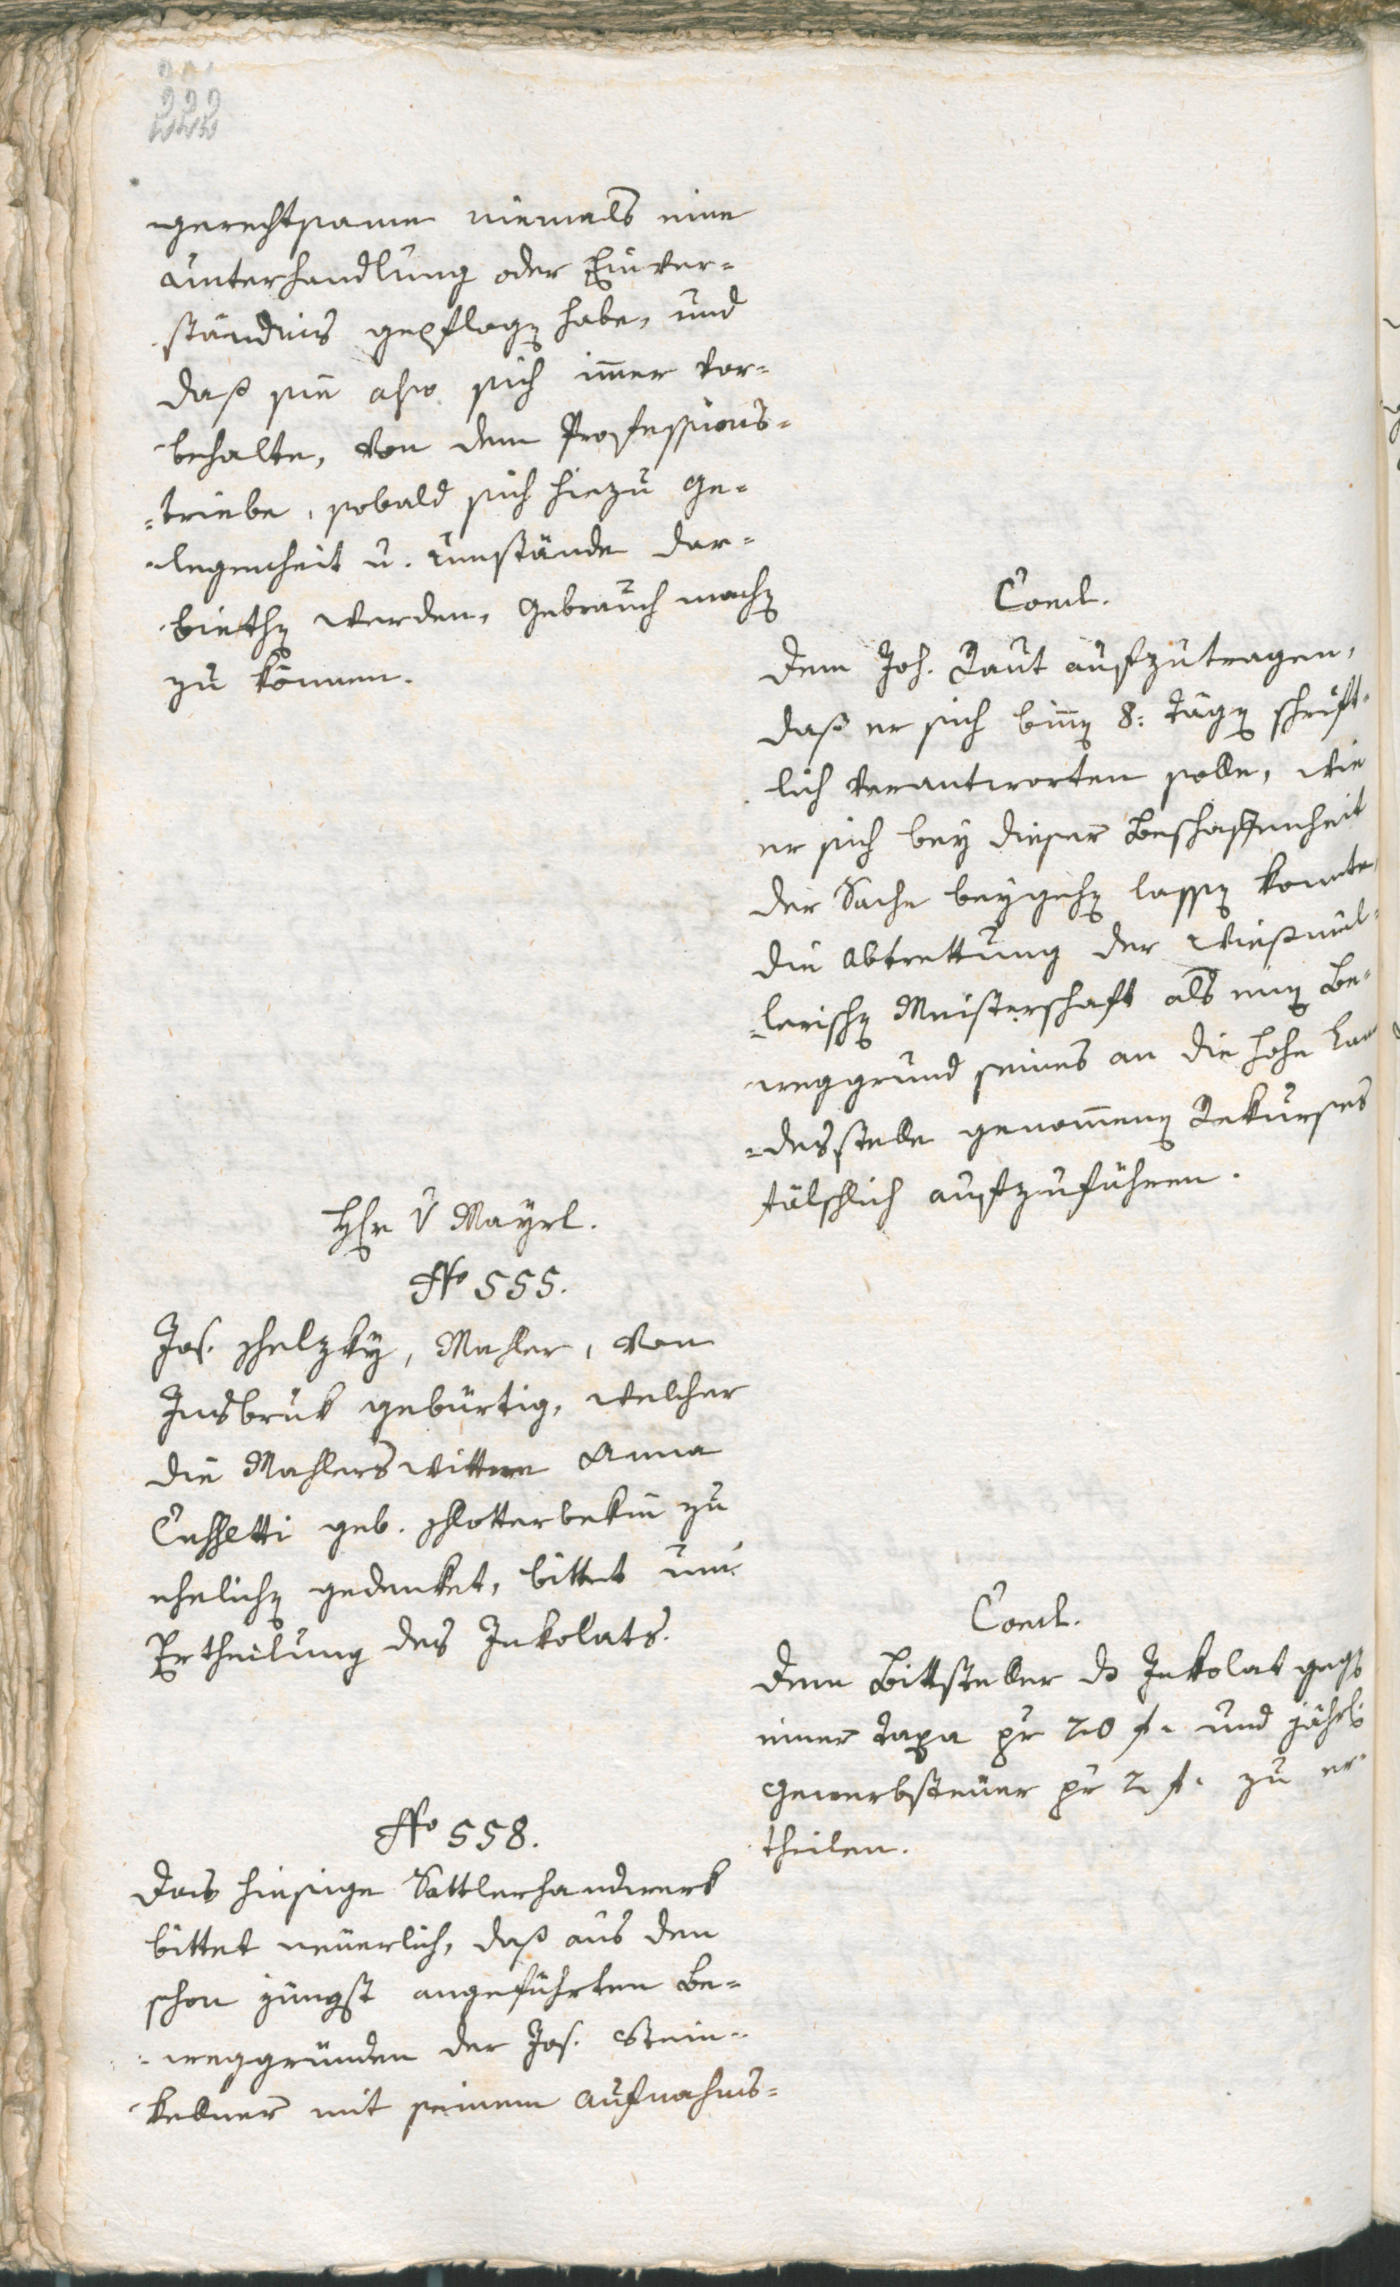 222
gerechtsame niemals eine
Unterhandlung oder Einver=
ständnis gepflogen habe, und
daß sie also sich immer vor=
behalte, von dem Professions=
=triebe, sobald sich hiezu Ge=
legenheit u. Umstände dar=
biethen werden, Gebrauch machen
zu können.
Concl.
Dem Joh. Raut aufzutragen,
daß er sich binnen 8: Tägen schrift=
lich verantworten solle, wie
er sich bey dieser Beschaffenheit
der Sache beygehen lassen konnte,
die Abtrettung der Wießmül=
=lerischen Meisterschaft als einen Be=
weggrund seines an die hohe Lan
=desstelle genommenen Rekurses
fälschlich aufzuführen.
Hr v Mayrl.
No 555.
Jos. Schelzky, Mahler, von
Insbruk gebürtig, welcher
die Mahlers Wittwe Anna
geb. Schlotterbekin zu
ehelichen gedenket, bittet um
Ertheilung des Inkolats.
Concl.
Dem Bittsteller ds Inkolat gegen
einer Taxa pr 20 f. und jährl.
Gewerbsteuer pr 2 f. zu er=
theilen.
No 558.
Das hiesige Sattlerhandwerk
bittet neuerlich, daß aus den
schon jüngst angeführten Be=
=weggründen der Jos. Stein=
kellner mit seinem Aufnahms=